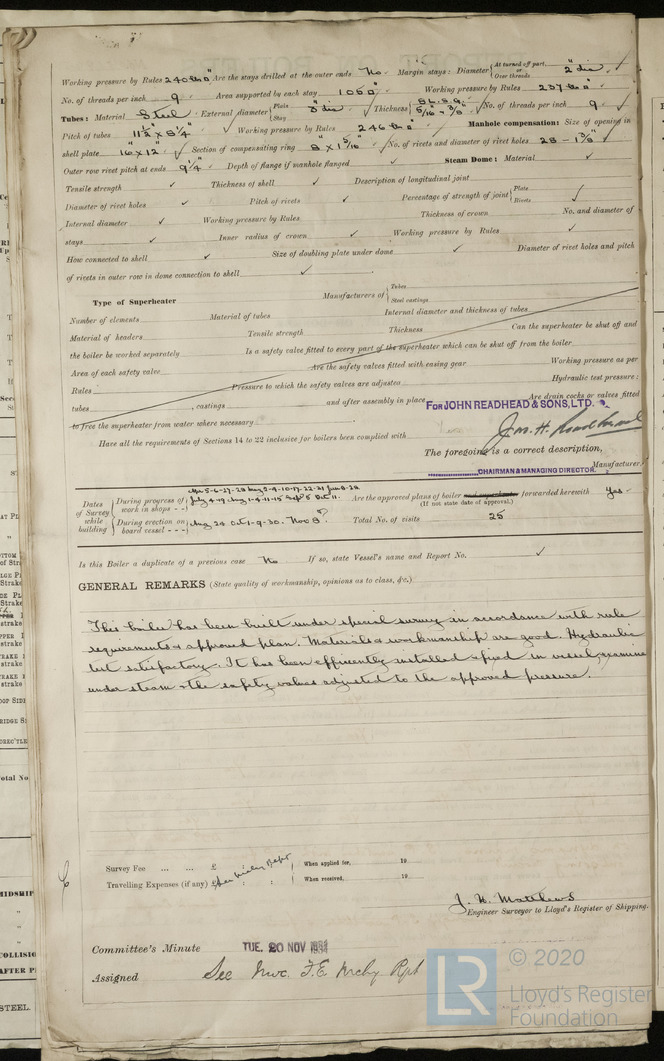 Working pressure by Rules 240 lbs □" Are the stays drilled at the outer ends No Margin stays: Diameter { At turned off part, or Over threads 2" dia
No. of threads per inch 9 Area supported by each stay Working pressure by Rules 237 lbs □"
Tubes: Material Steel External diameter { Plain Stay 3" dia Thickness { 5/16" & 3/8" No. of threads per inch 9
Pitch of tubes Working pressure by Rules 246 lbs □" Manhole compensation: Size of opening in
shell plate 16" x 12" Section of compensating ring 8" x 1 5/16" No. of rivets and diameter of rivet holes 28 - 1 3/8"
Outer row rivet pitch at ends 9 1/4" Depth of flange if manhole flanged ✓ Steam Dome: Material ✓
Tensile strength ✓ Thickness of shell ✓ Description of longitudinal joint
Diameter of rivet holes ✓ Pitch of rivets ✓ Percentage of strength of joint { Plate Rivets ✓
Internal diameter ✓ Working pressure by Rules Thickness of crown No. and diameter of
stays ✓ Inner radius of crown ✓ Working pressure by Rules ✓
How connected to shell ✓ Size of doubling plate under dome ✓ Diameter of rivet holes and pitch
of rivets in outer row in dome connection to shell ✓
Type of Superheater Manufacturers of { Tubes Steel castings
Number of elements Material of tubes Internal diameter and thickness of tubes
Material of headers Tensile strength Thickness Can the superheater be shut off and
the boiler be worked separately Is a safety valve fitted to every part of the superheater which can be shut off from the boiler
Area of each safety valve Are the safety valves fitted with easing gear Working pressure as per
Rules Pressure to which the safety valves are adjusted Hydraulic test pressure:
tubes , castings and after assembly in place Are drain cocks or valves fitted
to free the superheater from water where necessary
FOR JOHN READHEAD & SONS, LTD.
Have all the requirements of Sections 14 to 22 inclusive for boilers been complied with
The foregoing is a correct description,
CHAIRMAN & MANAGING DIRECTOR. Manufacturer.
Dates of Survey while building
During progress of work in shops - -
Are the approved plans of boiler and superheater forwarded herewith Yes
(If not state date of approval.)
During erection on board vessel - - - Aug 24 Oct 1-9-30. Nov 8 Total No. of visits 25
Is this Boiler a duplicate of a previous case No If so, state Vessel's name and Report No. ✓
GENERAL REMARKS (State quality of workmanship, opinions as to class, &c.)
This boiler has been built under special survey in accordance with rule
requirements & approved plan. Materials & workmanship are good. Hydraulic
test satisfactory. It has been efficiently installed & fixed in vessel, examined
under steam & the safety valves adjusted to the approved pressure.
Survey Fee ... ... £ : : When applied for, 19
Travelling Expenses (if any) £ : : When received, 19
J. H. Matthews
Engineer Surveyor to Lloyd's Register of Shipping.
Committee's Minute TUE. 20 NOV
Assigned See Nwc. F.E. Mchy Rpt
LR © 2020
Lloyd's Register
Foundation